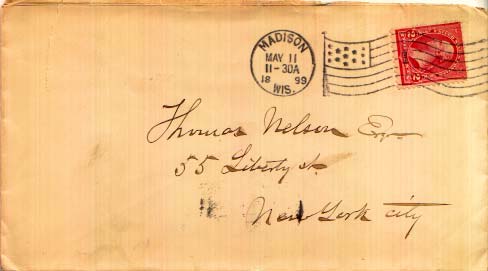 MADISON
MAY 11
11-30A
18 99
WIS.
Thomas Nelson Esq.
55 Liberty st.
New York city